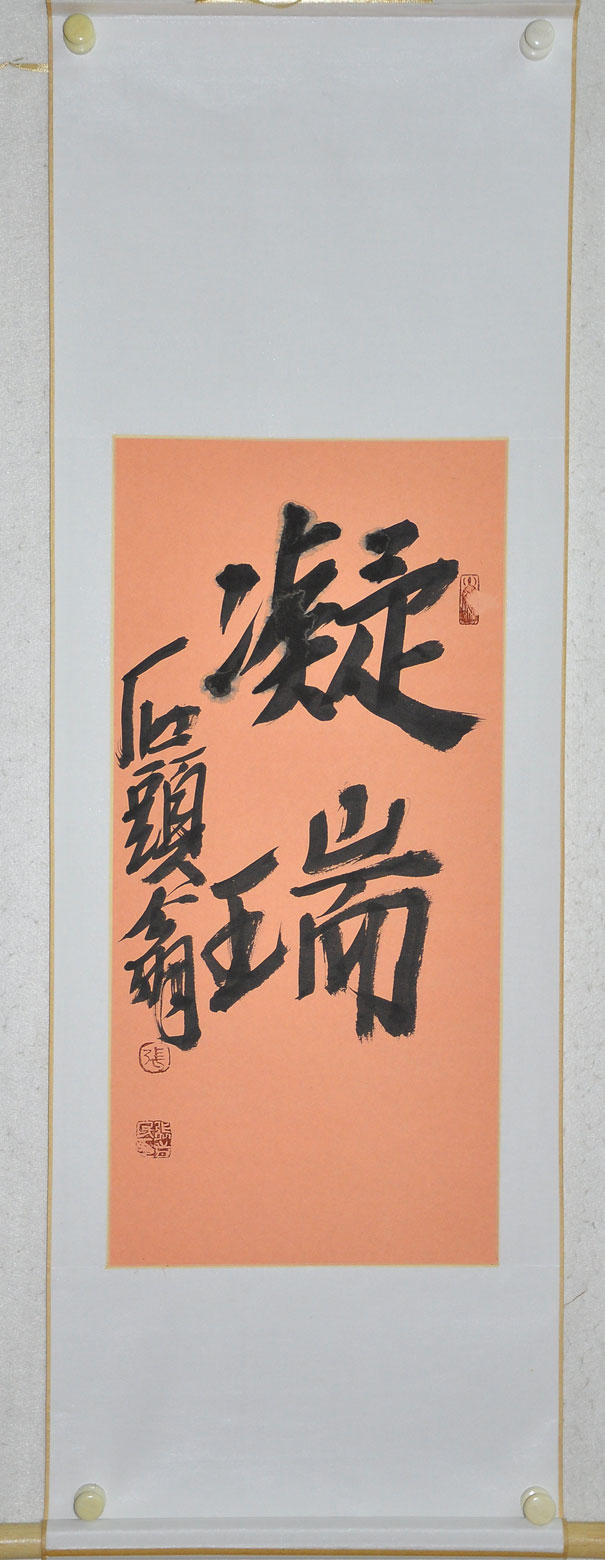 凝瑞
石頭翁
張